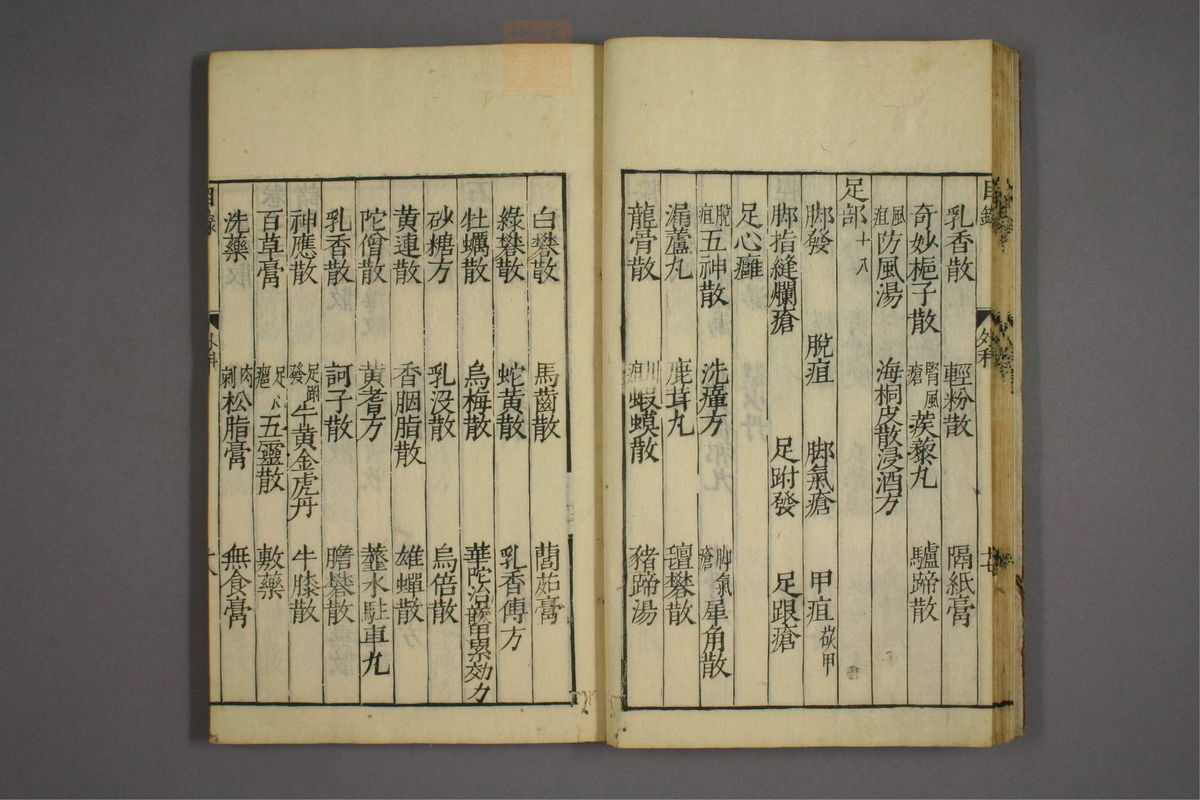 目錄 外科 十七
乳香散 輕粉散 隔紙膏
奇妙梔子散 腎風瘡蒺藜丸 驢蹄散
風疽防風湯 海桐皮散浸酒方
足部十八
脚發 脫疽 脚氣瘡 甲疽嵌甲
脚指縫爛瘡 足跗發 足跟瘡
足心癰
脫疽五神散 洗瘴方 脚氣瘡犀角散
漏蘆丸 鹿茸丸 礬散
龍骨散 疽蝦蟆散 豬蹄湯
白礬散 馬齒散 䕡茹膏
綠礬散 蛇黃散 乳香傅方
牡蠣散 烏梅散 華陀治累効方
砂糖方 乳沒散 烏倍散
黃連散 香胭脂散 雄蟬散
陀僧散 黃耆方 虀水駐車丸
乳香散 訶子散 膽礬散
神應散 足跗發牛黃金虎丹 牛膝散
百草膏 足心癰五靈散 敷藥
洗藥 肉刺松脂膏 無食膏
目錄 外科 十八